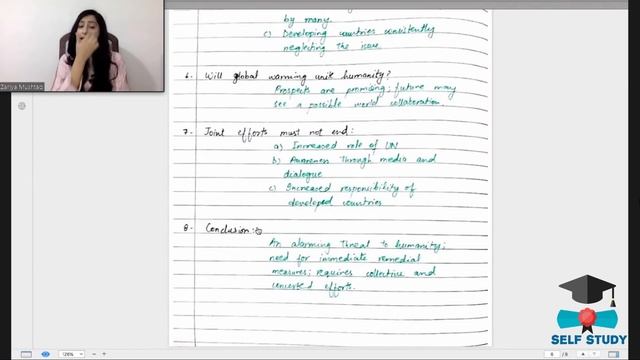 by many
c) Developing countries consistently
neglecting the issue
6. Will global warming unite humanity?
Prospects are promising; future may
see a possible world collaboration
7. Joint efforts must not end:
a) Increased role of UN
b) Awareness through media and
dialogue
c) Increased responsibility of
developed countries
8- Conclusion:
An alarming threat to humanity;
need for immediate remedial
measures; requires collective and
concerted efforts.
Zanja Mushtaq
126%
6 / 6
SELF STUDY